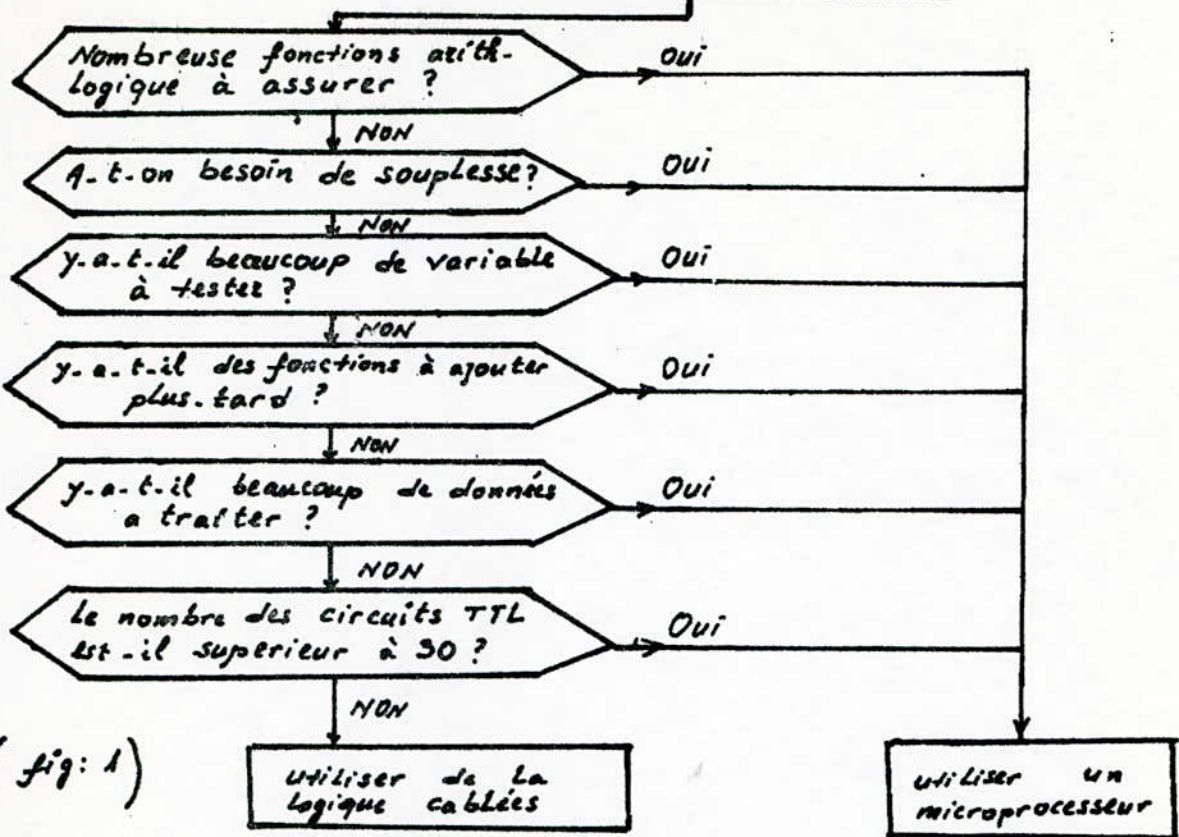 Nombreuse fonctions arith-
Logique à assurer ?
Oui
NON
A-t-on besoin de souplesse?
Oui
NON
y-a-t-il beaucoup de variable
à tester ?
Oui
NON
y-a-t-il des fonctions à ajouter
plus-tard ?
Oui
NON
y-a-t-il beaucoup de données
a traiter ?
Oui
NON
Le nombre des circuits TTL
est-il superieur à 30 ?
Oui
NON
(fig: 1)
utiliser de La
Logique cablées
utiliser un
microprocesseur